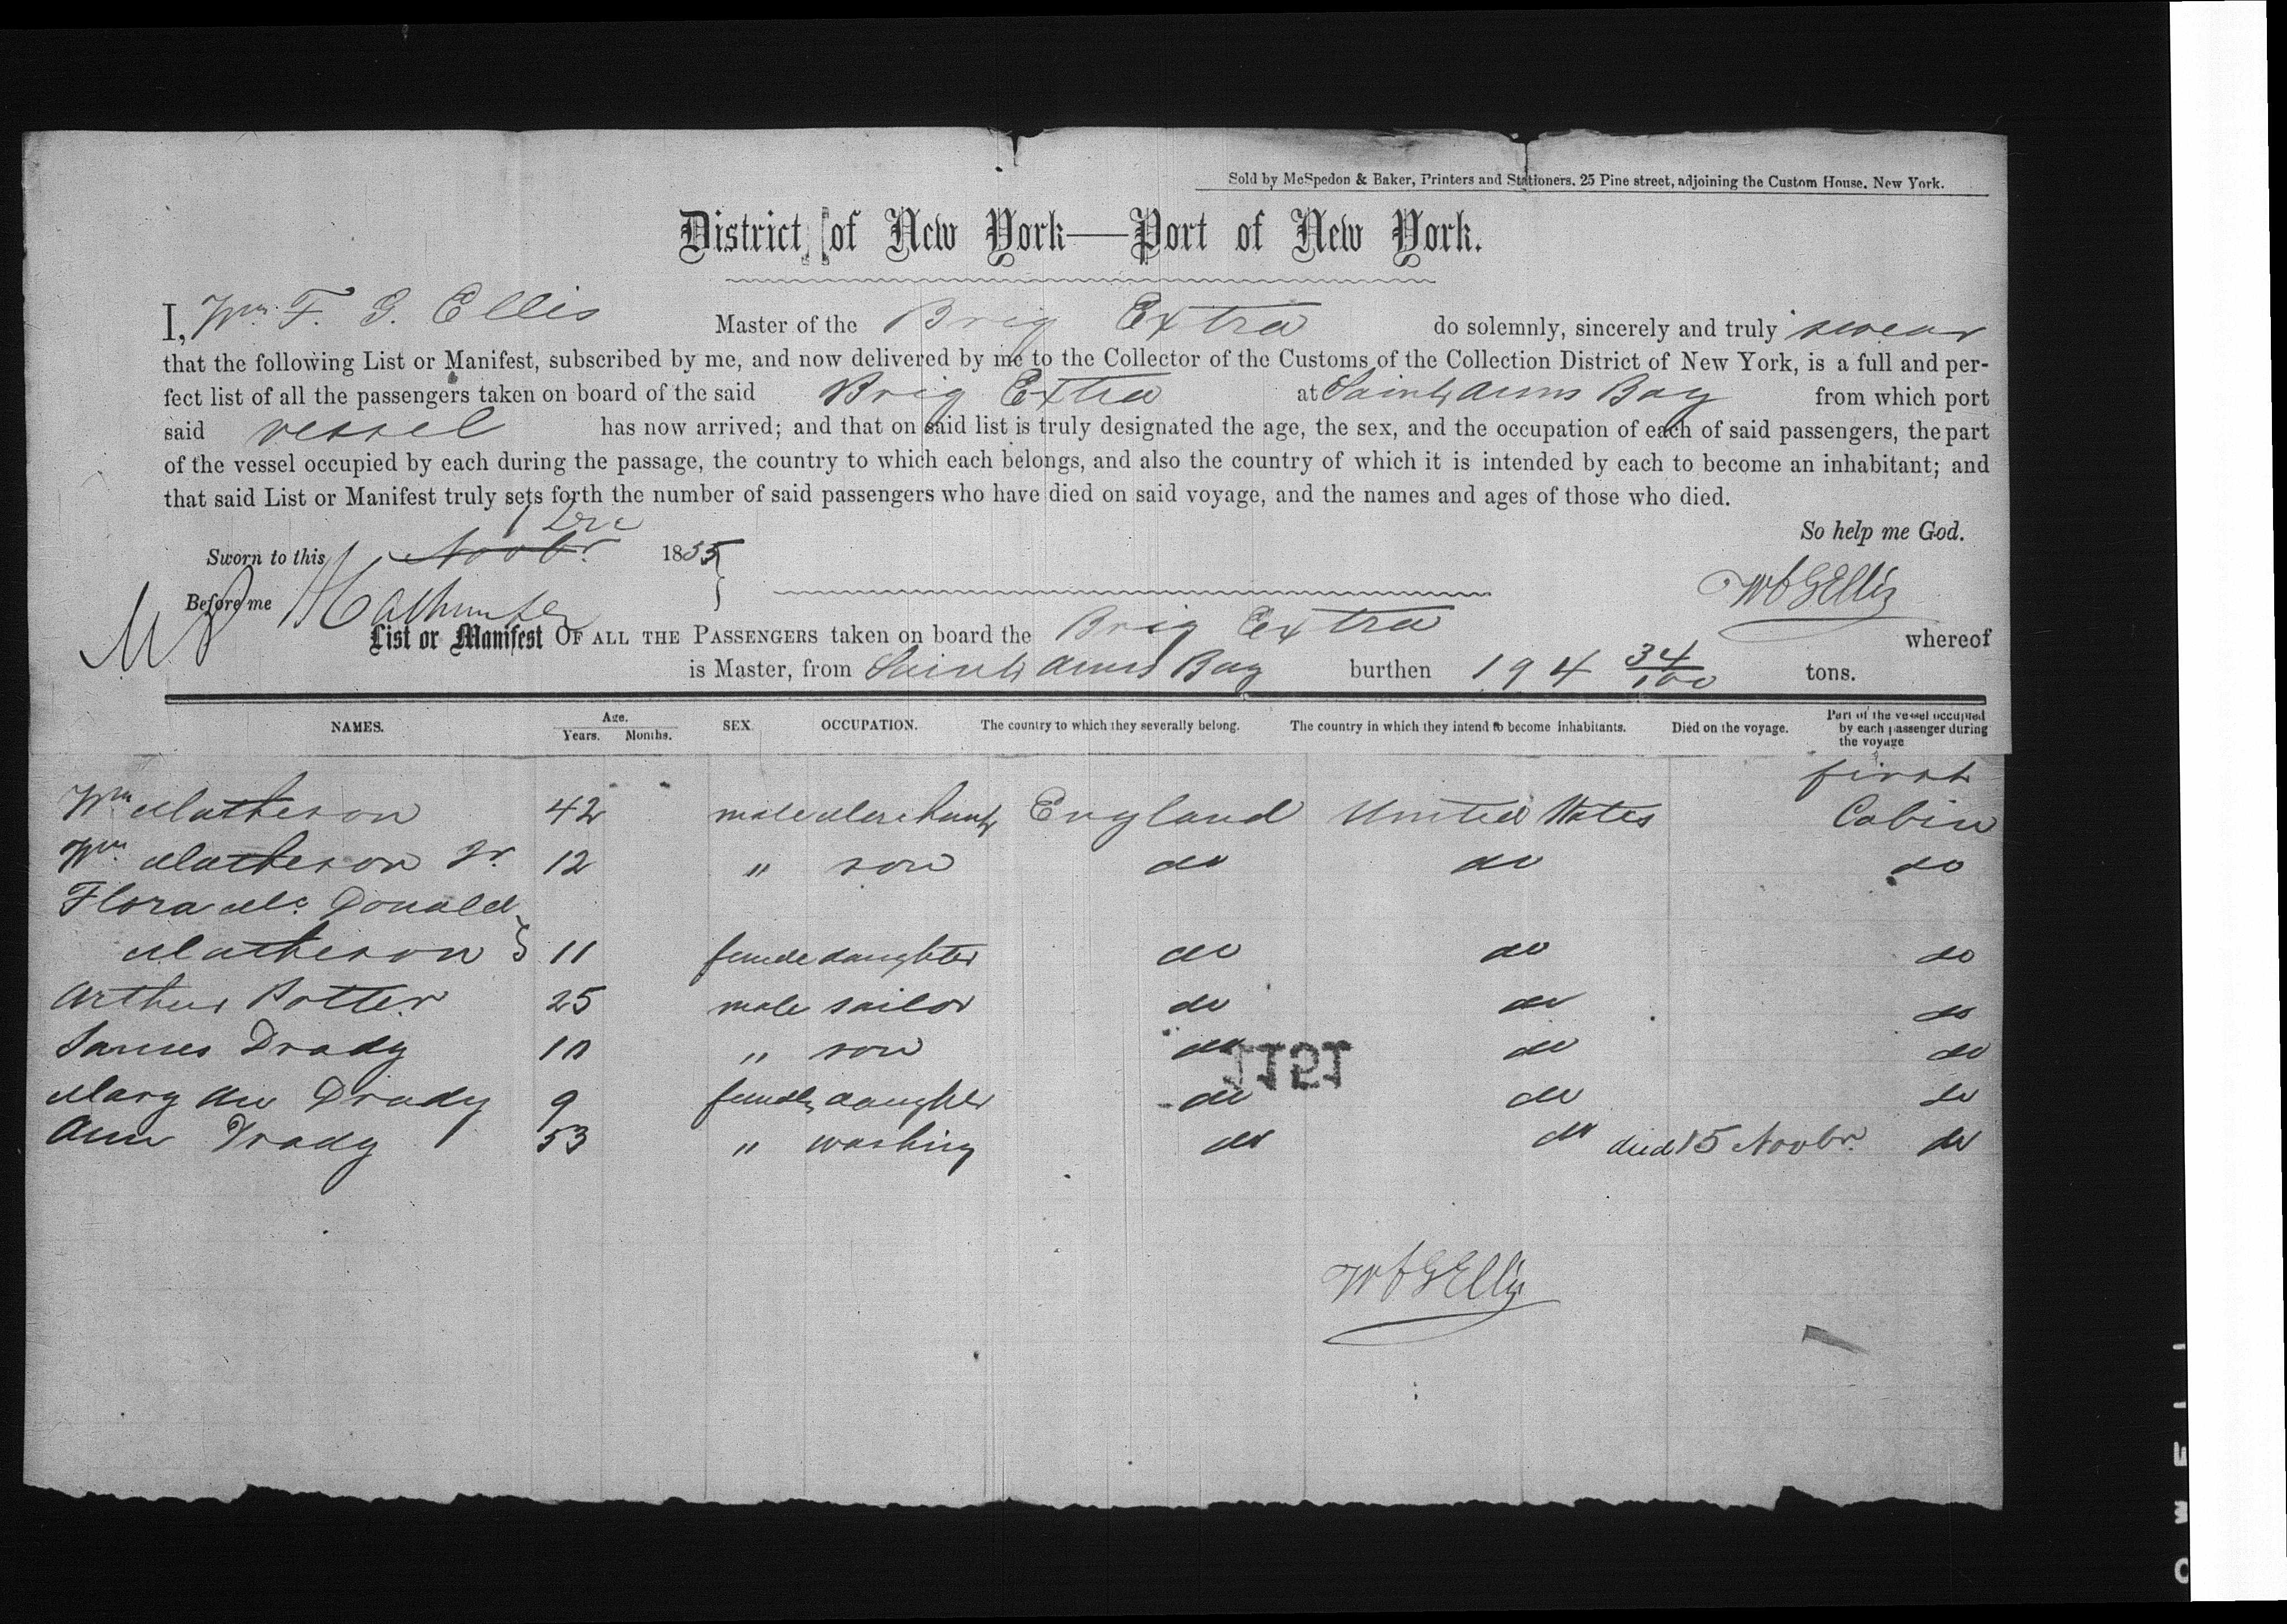 Sold by McSpedon & Baker, Printers and Stationers. 25 Pine street, adjoining the Custom House. New York.
District of New York—Port of New York.
I, Wm. F. G. Ellis Master of the Brig Extra do solemnly, sincerely and truly swear
that the following List or Manifest, subscribed by me, and now delivered by me to the Collector of the Customs of the Collection District of New York, is a full and per-
fect list of all the passengers taken on board of the said Brig Extra at Saint Anns Bay from which port
said vessel has now arrived; and that on said list is truly designated the age, the sex, and the occupation of each of said passengers, the part
of the vessel occupied by each during the passage, the country to which each belongs, and also the country of which it is intended by each to become an inhabitant; and
that said List or Manifest truly sets forth the number of said passengers who have died on said voyage, and the names and ages of those who died.
So help me God.
1 Dec
Sworn to this Novbr. 1855
Before me
WFGEllis
List or Manifest OF ALL THE PASSENGERS taken on board the Brig Extra whereof
is Master, from Saint Anns Bay burthen 194 34/100 tons.
NAMES. Age. Years. Months. SEX. OCCUPATION. The country to which they severally belong. The country in which they intend to become inhabitants. Died on the voyage. Part of the vessel occupied by each passenger during the voyage
first
Wm Matheson 42 male Merchant England United States Cabin
Wm. Matheson Jr. 12 " son do do do
Flora Mc Donald
Matheson } 11 female daughter do do do
Arthur Potter 25 male sailor do do do
James Drady 10 " son do do do
1517
Mary Ann Drady 9 female daughter do do do
Ann Drady 53 " washing do do died 15 Novbr. do
WFGEllis